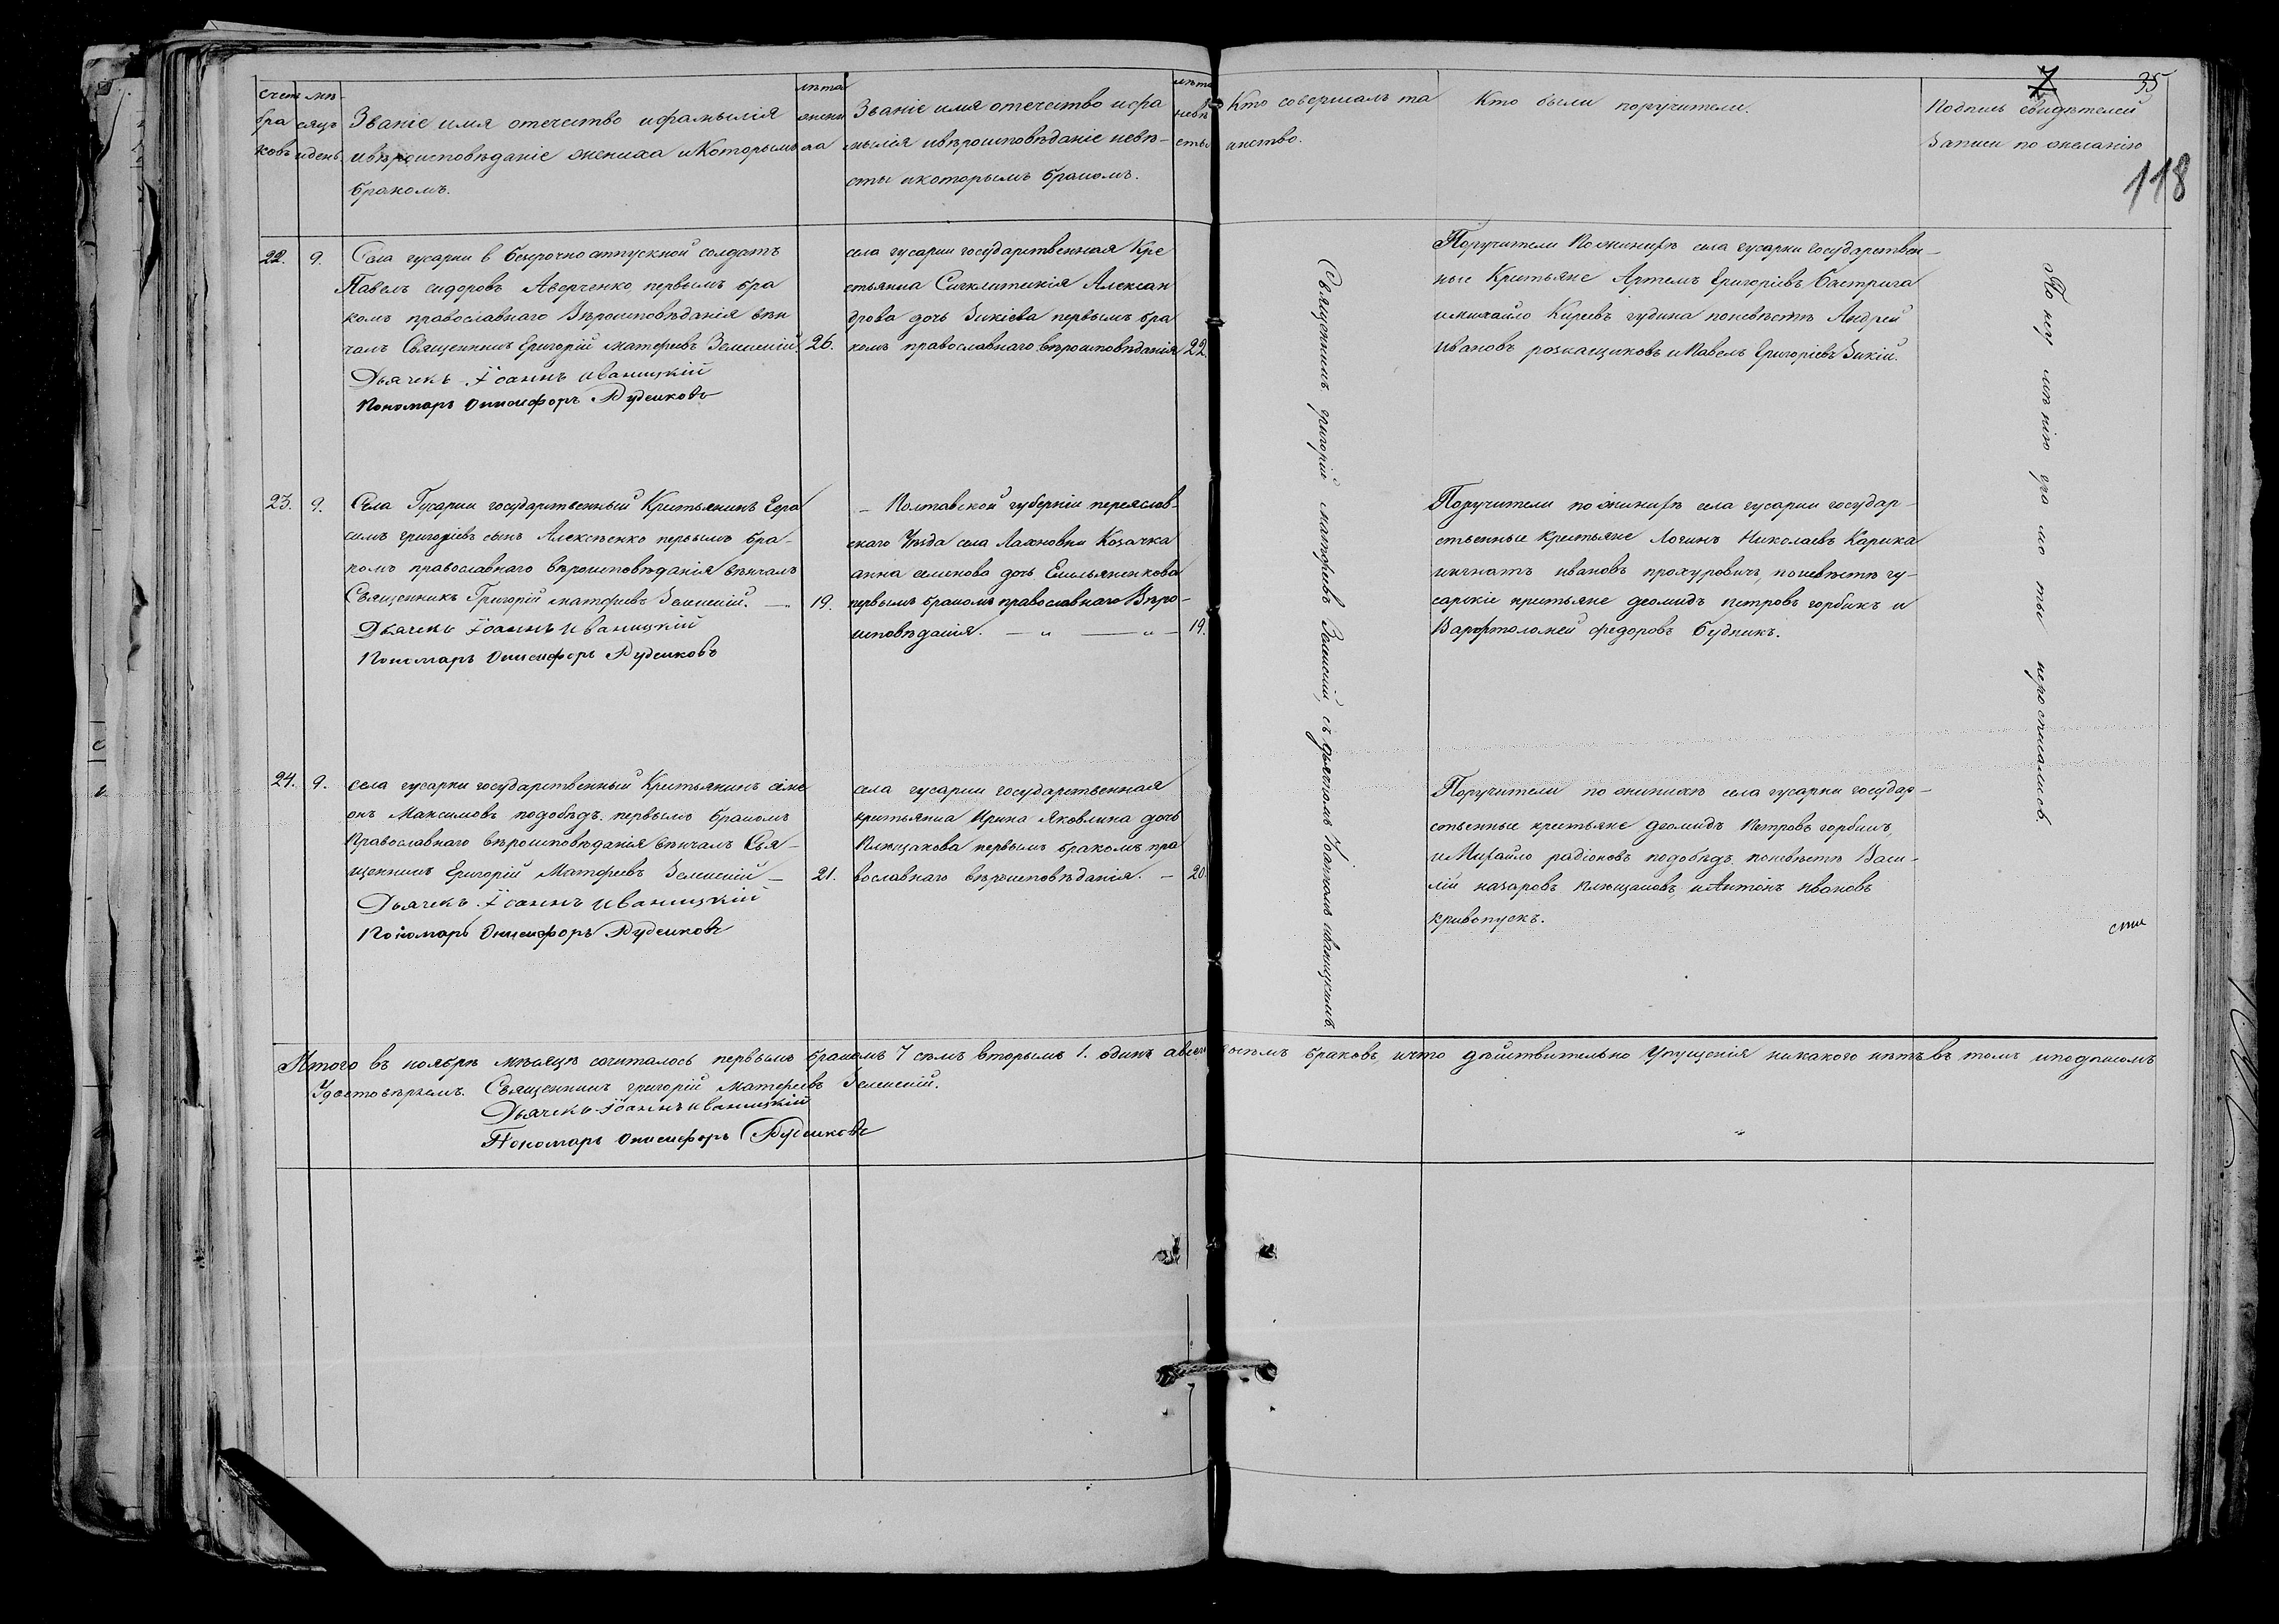 35
118
счетъ
бра
ковъ
мѣ-
сяцъ
и день
Званіе имя отечество и фамылія
и вѣроисповѣданіе жениха и Которымъ
бракомъ.
лѣта
жени
ха
Званіе имя отечество и фа
мылія и вѣроисповѣданіе невѣ-
сты и которымъ бракомъ.
лѣта
невѣ
сты
Кто совершалъ та
инство.
Кто были поручители.
Подпись свидѣтелей
Записи по желанію
22.
9.
Села гусарки в безсрочно отпускной солдатъ
Павелъ сидоровъ Аверченко первымъ бра
комъ православнаго Вѣроисповѣданія вѣн
чалъ Священникъ Григорій матфеевъ Зеленскій
Дьячекъ Іоаннъ иваницкій
Пономарь Онисифоръ Руденковъ
26.
села гусарки государственная Кре
стьянка Сигклитикія Алексан
дрова дочь Зикіева первымъ бра
комъ православнаго вѣроисповѣданія
22.
Поручители По жинихѣ села гусарки государствен-
ные Кретьяне Артемъ Григоріевъ бастрига
и михайло Киреевъ гудина по невѣстѣ Андрей
ивановъ розкащиковъ и Павелъ Григоріевъ Зикій.
23.
9.
Села Гусарки государственный Кретьянинъ Гера
симъ григоріевъ сынъ Алексѣенко первымъ бра-
комъ православнаго вѣроисповѣданія вѣнчалъ
Священникъ Григорій матфеевъ Зеленскій.
Дьячекъ Іоаннъ иваницкій
Пономарь Онисифоръ Руденковъ
19.
– Полтавской губерніи переяслав-
скаго Уѣзда села Лахновки Козачка
анна семинова дочь Емильяненкова
первымъ бракомъ православнаго Вѣро-
исповѣданія.
19.
Поручители по жинихѣ села гусарки государ-
ственные кретьяне Логинъ Николаевъ Карика
и игнатъ ивановъ прохуровичъ, по невѣстѣ гу-
сарскіе кретьяне деомидъ петровъ горбикъ и
Варфтоломей федоровъ будникъ.
24.
9.
села гусарки государственный Кретьянинъ симе
онъ Максимовъ подобѣдъ. первымъ бракомъ
Православнаго вѣроисповѣданія вѣнчалъ Свя-
щенникъ Григорій Матфеевъ Зеленскій –
Дьячекъ Іоаннъ иваницкій
Пономарь Онисифоръ Руденковъ
21.
села гусарки государственная
кретьянка Ирина Яковлина дочь
Плющакова первымъ бракомъ пра
вославнаго вѣроисповѣданія. –
20.
Поручители по жинихѣ села гусарки государ-
ственные кретьяне деомидъ Петровъ горбикъ,
и Михайло радіоновъ подобѣдъ. по невѣстѣ Васи-
лій назаровъ плющаковъ, и Антонъ ивановъ
кривопускъ.
Священникъ григорій матфеевъ Зеленскій, съ дьячкомъ Іоанномъ иваницкимъ.
По неу мѣ нію гра мо ты не росписались.
Итого въ ноябрѣ мѣсяцѣ сочиталось первымъ бракомъ 7 семъ вторымъ 1. одинъ а всего восемъ браковъ и что дѣйствительно Упущенія никакого нѣтъ въ томъ и подписомъ
Удостовѣряемъ. Священникъ григорій Матфеевъ Зеленскій.
Дьячекъ Іоаннъ иваницкій
Пономарь Онисифоръ Руденковъ